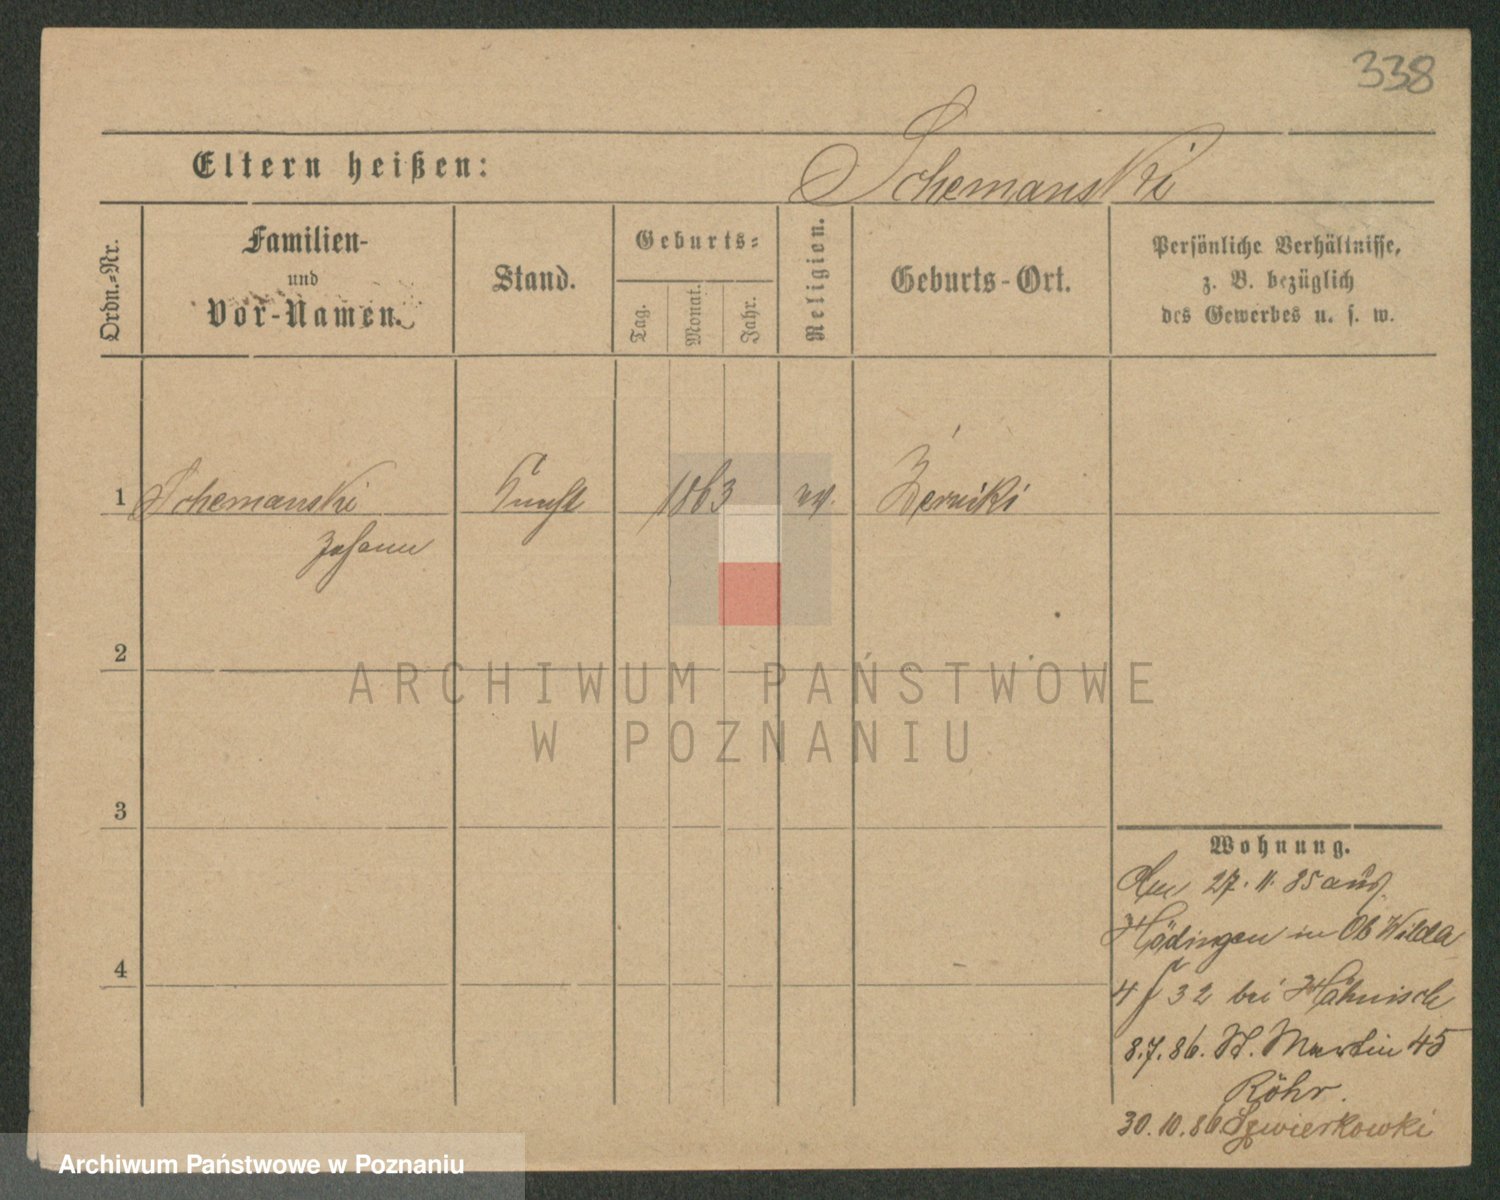 338
Eltern heißen: Schemanski
Ordn.-Nr.
Familien-
und
Vor-Namen.
Stand.
Geburts-
Tag.
Monat.
Jahr.
Religion.
Geburts-Ort.
Persönliche Verhältnisse,
z. B. bezüglich
des Gewerbes u. s. w.
1 Schemanski 1863 Żerniki
Johann
2
ARCHIWUM PAŃSTWOWE
W POZNANIU
3
Wohnung.
27. 11. 85 aus
Hödingen in Ob Wilda
4
32 bei Hähnisch
8.7.86. St. Martin 45
Röhr.
30. 10. 86
Archiwum Państwowe w Poznaniu